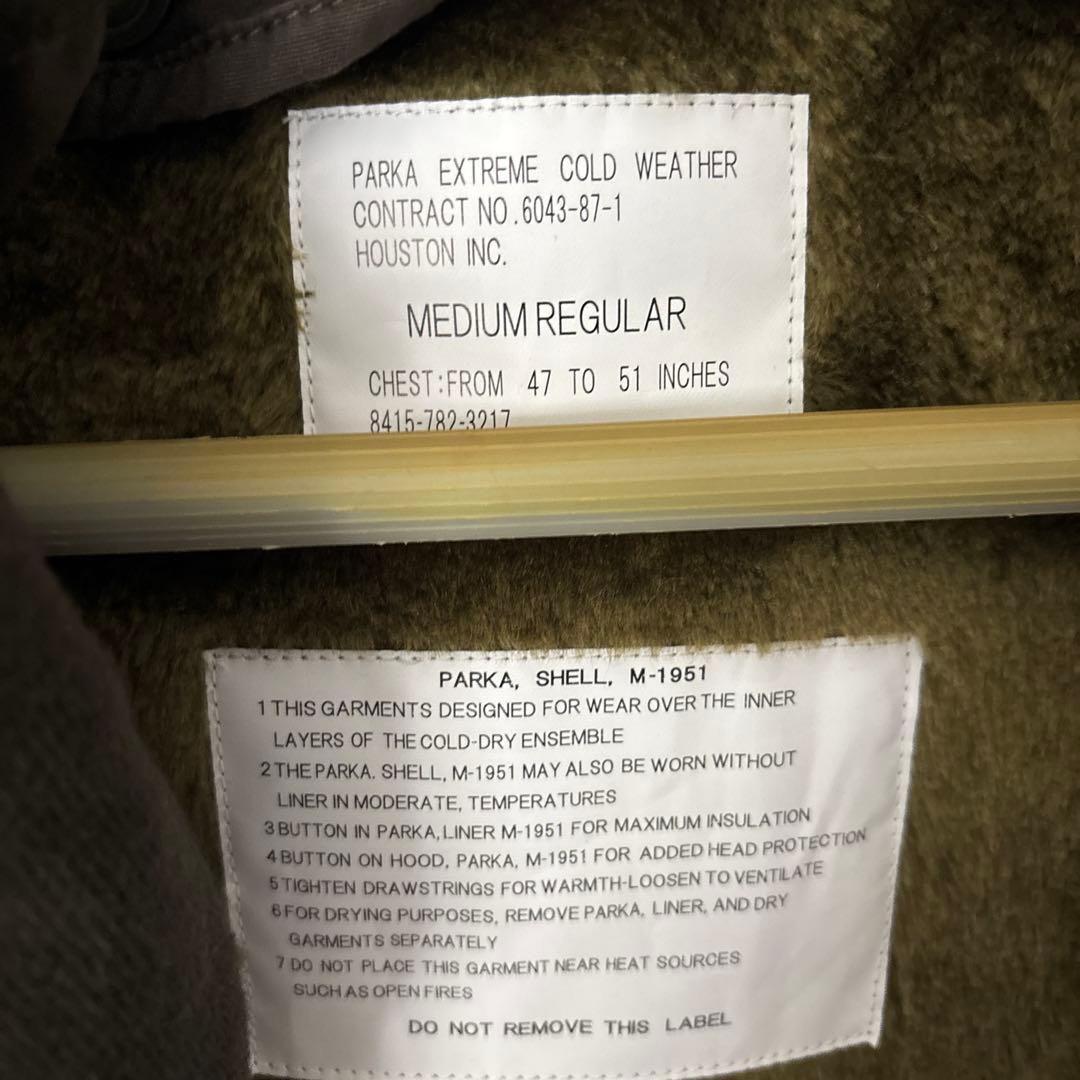 PARKA EXTREME COLD WEATHER
CONTRACT NO.6043-87-1
HOUSTON INC.
MEDIUM REGULAR
CHEST:FROM 47 TO 51 INCHES
8415-782-3217
PARKA, SHELL, M-1951
1 THIS GARMENTS DESIGNED FOR WEAR OVER THE INNER
LAYERS OF THE COLD-DRY ENSEMBLE
2 THE PARKA. SHELL, M-1951 MAY ALSO BE WORN WITHOUT
LINER IN MODERATE, TEMPERATURES
3 BUTTON IN PARKA, LINER M-1951 FOR MAXIMUM INSULATION
4 BUTTON ON HOOD, PARKA, M-1951 FOR ADDED HEAD PROTECTION
5 TIGHTEN DRAWSTRINGS FOR WARMTH-LOOSEN TO VENTILATE
6 FOR DRYING PURPOSES, REMOVE PARKA, LINER, AND DRY
GARMENTS SEPARATELY
7 DO NOT PLACE THIS GARMENT NEAR HEAT SOURCES
SUCH AS OPEN FIRES
DO NOT REMOVE THIS LABEL